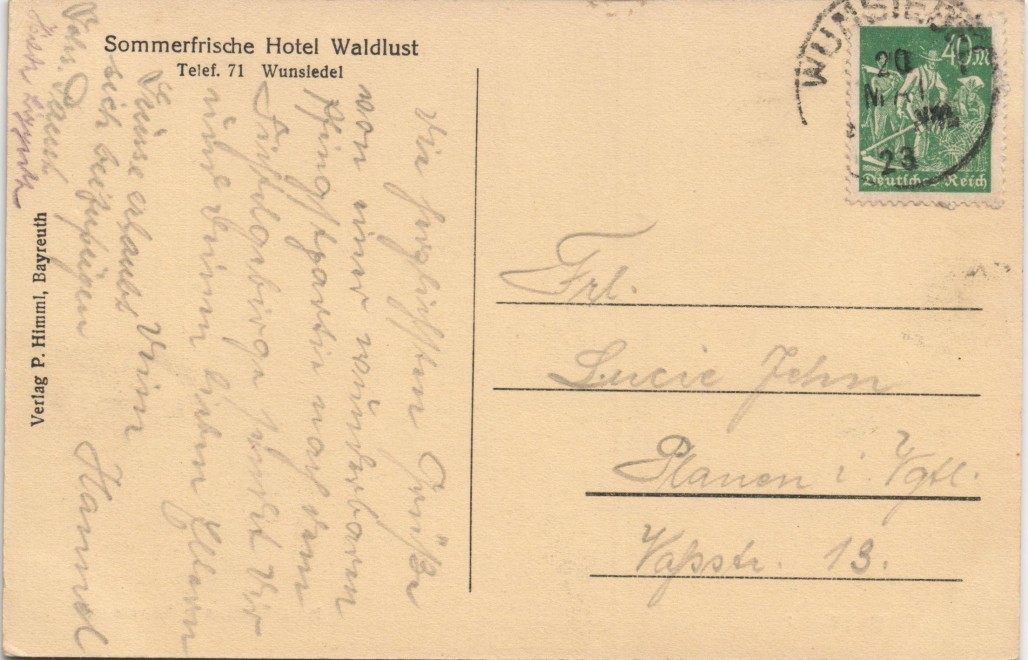 Sommerfrische Hotel Waldlust
Telef. 71 Wunsiedel
WUNSIEDEL
20
MAI
23
40 M
Deutsches Reich
Verlag P. Himml, Bayreuth
Die herzlichsten Grüße
von einer wunderbaren
Pfingstpartie nach dem
Fichtelgebirge sendet Dir
und Deinen lieben Eltern
Deine
Grüße erlaubt
sich beizufügen
Frl.
Lucie Jehn
Plauen i. Vgtl.
Vaßstr. 13.